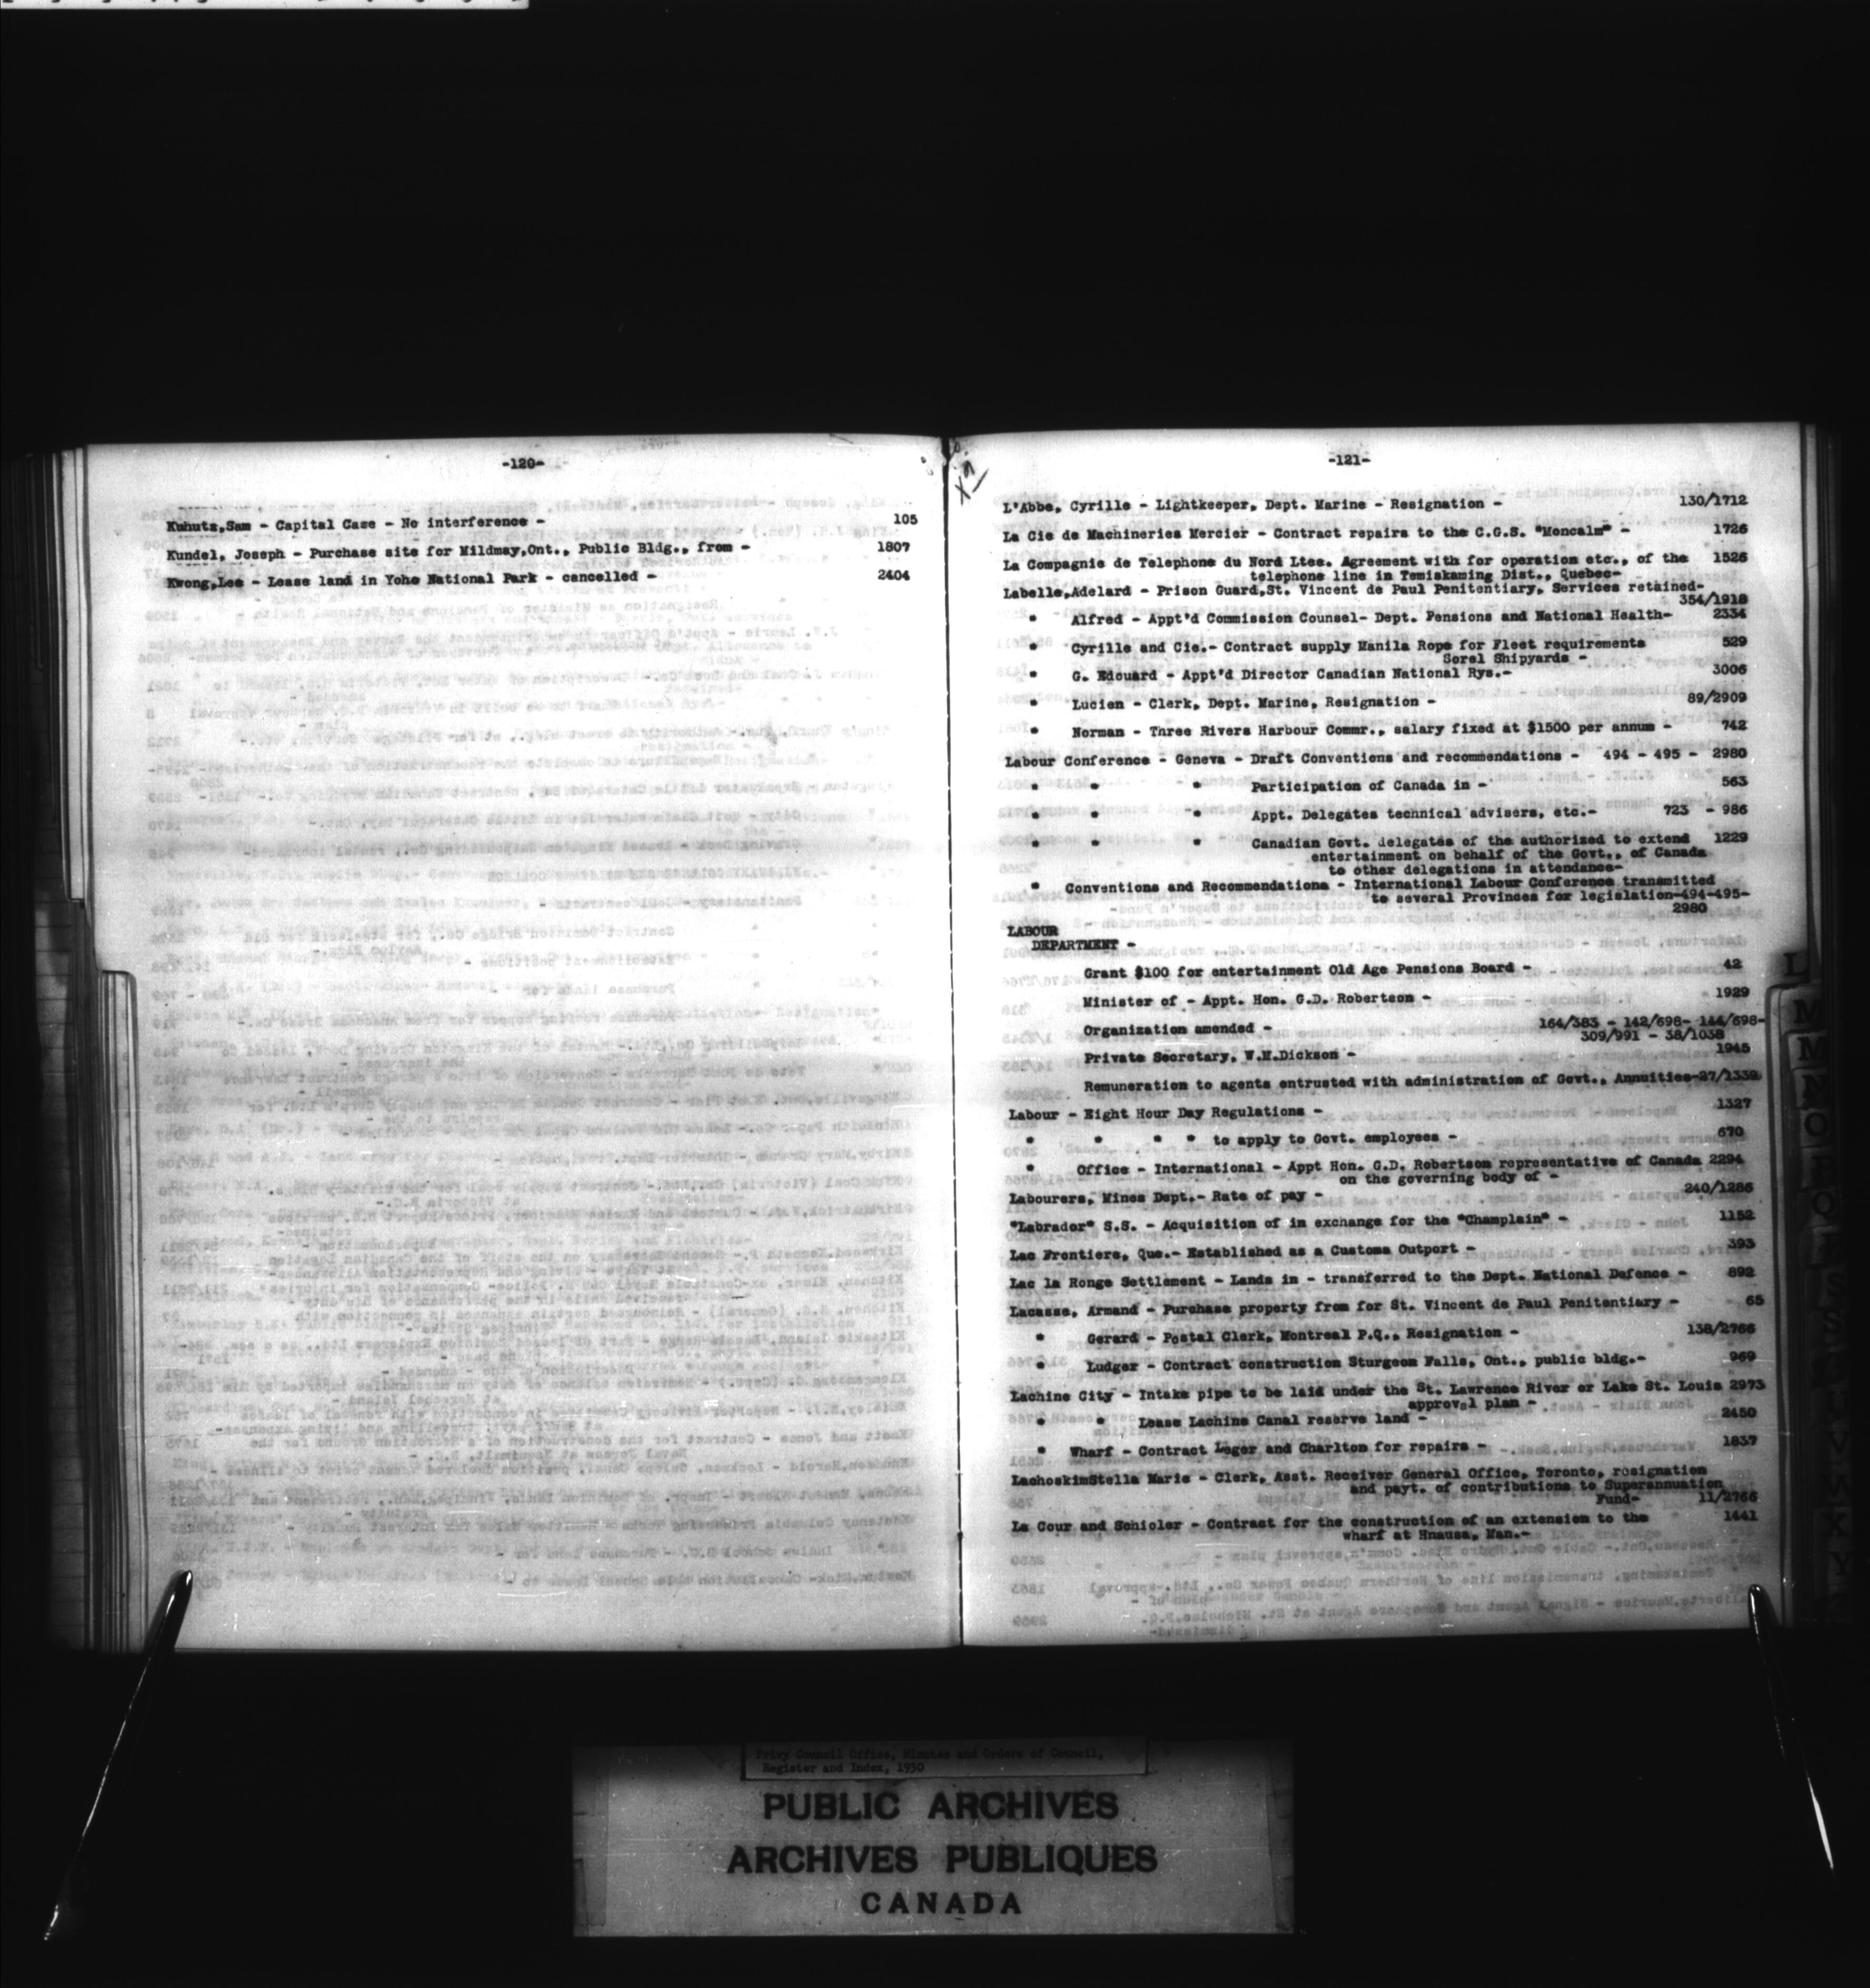 -120-
Kuhutz,Sam - Capital Case - No interference - 105
Kundel, Joseph - Purchase site for Mildmay,Ont., Public Bldg., from - 1807
Kwong,Lee - Lease land in Yoho National Park - cancelled - 2404
-121-
L'Abbe, Cyrille - Lightkeeper, Dept. Marine - Resignation - 130/1712
La Cie de Machineries Mercier - Contract repairs to the C.G.S. "Moncalm" - 1726
La Compagnie de Telephone du Nord Ltee. Agreement with for operation etc., of the 1526
telephone line in Temiskaming Dist., Quebec-
Labelle,Adelard - Prison Guard,St. Vincent de Paul Penitentiary, Services retained-
354/1918
" Alfred - Appt'd Commission Counsel- Dept. Pensions and National Health- 2334
" Cyrille and Cie.- Contract supply Manila Rope for Fleet requirements 529
Sorel Shipyards -
" G. Edouard - Appt'd Director Canadian National Rys.- 3006
" Lucien - Clerk, Dept. Marine, Resignation - 89/2909
" Norman - Three Rivers Harbour Commr., salary fixed at $1500 per annum - 742
Labour Conference - Geneva - Draft Conventions and recommendations - 494 - 495 - 2980
" " " Participation of Canada in - 563
" " " Appt. Delegates technical advisers, etc.- 723 - 986
" " " Canadian Govt. delegates of the authorized to extend 1229
entertainment on behalf of the Govt., of Canada
to other delegations in attendance-
" Conventions and Recommendations - International Labour Conference transmitted
to several Provinces for legislation-494-495-
2980
LABOUR
DEPARTMENT -
Grant $100 for entertainment Old Age Pensions Board - 42
Minister of - Appt. Hon. G.D. Robertson - 1929
Organization amended - 164/383 - 142/698- 144/698-
309/991 - 38/1038
Private Secretary, W.M.Dickson - 1945
Remuneration to agents entrusted with administration of Govt., Annuities-27/1339
Labour - Eight Hour Day Regulations - 1327
" " " " to apply to Govt. employees - 670
" Office - International - Appt Hon. G.D. Robertson representative of Canada 2294
on the governing body of -
Labourers, Mines Dept.- Rate of pay - 240/1286
"Labrador" S.S. - Acquisition of in exchange for the "Champlain" - 1152
Lac Frontiere, Que.- Established as a Customs Outport - 393
Lac la Ronge Settlement - Lands in - transferred to the Dept. National Defence - 892
Lacasse, Armand - Purchase property from for St. Vincent de Paul Penitentiary - 65
" Gerard - Postal Clerk, Montreal P.Q., Resignation - 138/2766
" Ludger - Contract construction Sturgeon Falls, Ont., public bldg.- 969
Lachine City - Intake pipe to be laid under the St. Lawrence River or Lake St. Louis 2973
approval plan -
" " Lease Lachine Canal reserve land - 2450
" Wharf - Contract Leger and Charlton for repairs - 1837
LachoskimStella Marie - Clerk, Asst. Receiver General Office, Toronto, resignation
and payt. of contributions to Superannuation
Fund- 11/2766
La Cour and Schioler - Contract for the construction of an extension to the 1441
wharf at Hnausa, Man.-
L
M
M
N
O
Privy Council Office, Minutes and Orders of Council,
Register and Index, 1930
PUBLIC ARCHIVES
ARCHIVES PUBLIQUES
CANADA